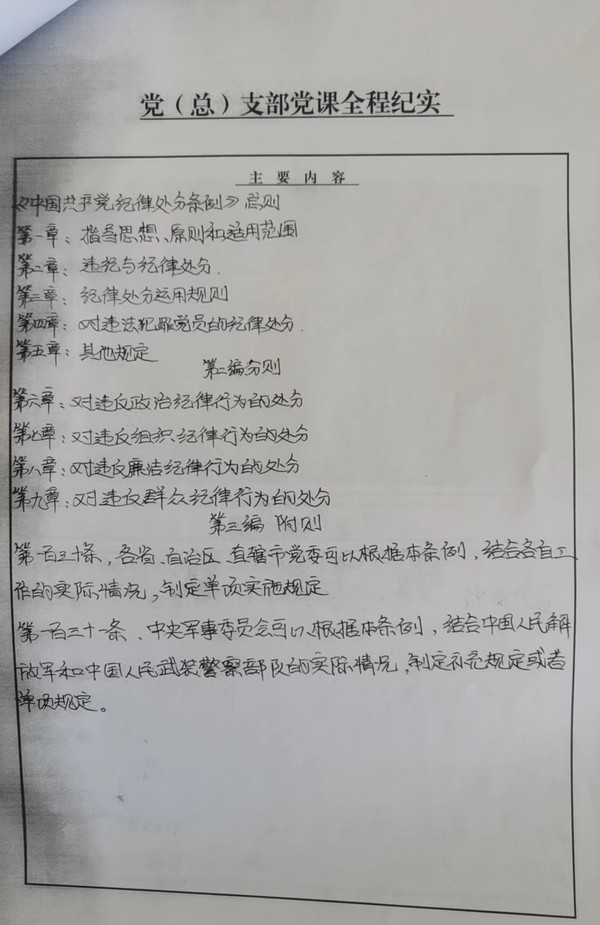 党（总）支部党课全程纪实
主要内容
《中国共产党纪律处分条例》总则
第一章：指导思想、原则和适用范围
第二章：违纪与纪律处分.
第三章：纪律处分运用规则
第四章：对违法犯罪党员的纪律处分.
第五章：其他规定
第二编分则
第六章：对违反政治纪律行为的处分
第七章：对违反组织纪律行为的处分
第八章：对违反廉洁纪律行为的处分
第九章：对违反群众纪律行为的处分
第三编 附则
第一百三十条，各省、自治区、直辖市党委可以根据本条例，结合各自工
作的实际情况，制定单项实施规定
第一百三十一条、中央军事委员会可以根据本条例，结合中国人民解
放军和中国人民武装警察部队的实际情况，制定补充规定或者
单项规定。